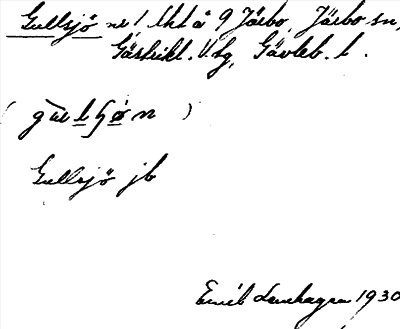 Gullsjö nr 1 lht å 9 Järbo, Järbo sn,
Gästrikl. V. tg, Gävleb. l.
( gulsjøn )
Gullsjö jb
Emil Lenhagen 1930